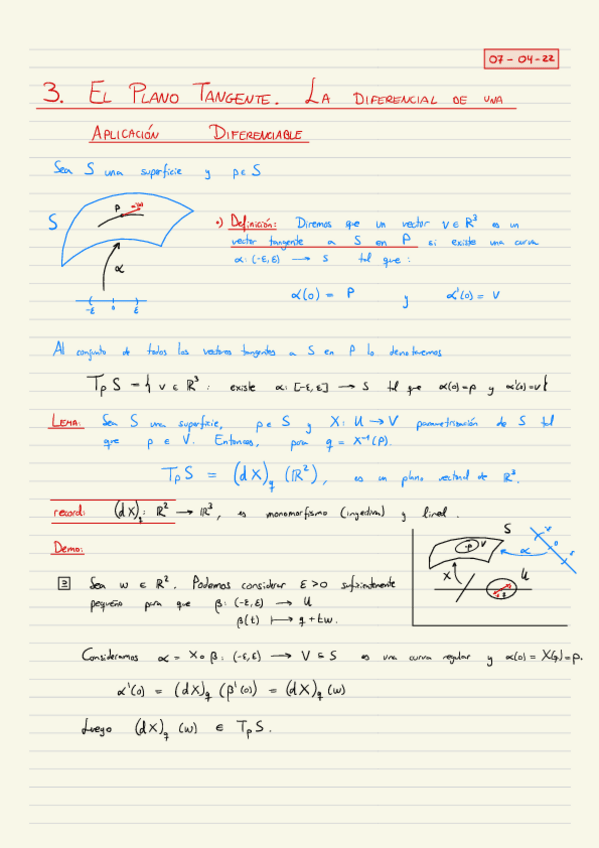 07-04-22
3. EL PLANO TANGENTE. LA DIFERENCIAL DE UNA
APLICACIÓN DIFERENCIABLE
Sea S una superficie y p ∈ S
S
P
α
-ε 0 ε
•) Definición: Diremos que un vector v ∈ ℝ³ es un
vector tangente a S en P si existe una curva
α: (-ε, ε) → S tal que:
α(0) = P y α'(0) = V
Al conjunto de todos los vectores tangentes a S en P lo denotaremos
TpS = { v ∈ ℝ³ : existe α: [-ε, ε] → S tal que α(0)=p y α'(0)=v}
LEMA: Sea S una superficie, p ∈ S y X: U → V parametrización de S tal
que p ∈ V. Entonces, para q = X⁻¹(P).
TpS = (dX)q (ℝ²), es un plano vectorial de ℝ³.
record: (dX)q: ℝ² → ℝ³, es monomorfismo (inyectiva) y lineal.
Demo:
S
•P V
α
-ε
0
ε
X
U
⊇ Sea w ∈ ℝ². Podemos considerar ε>0 suficientemente
pequeño para que β: (-ε, ε) → U
β(t) ↦ q + tw.
Consideramos α = X∘β: (-ε, ε) → V ⊆ S es una curva regular y α(0) = X(q) = p.
α'(0) = (dX)q (β'(0)) = (dX)q (w)
Luego (dX)q (w) ∈ TpS.